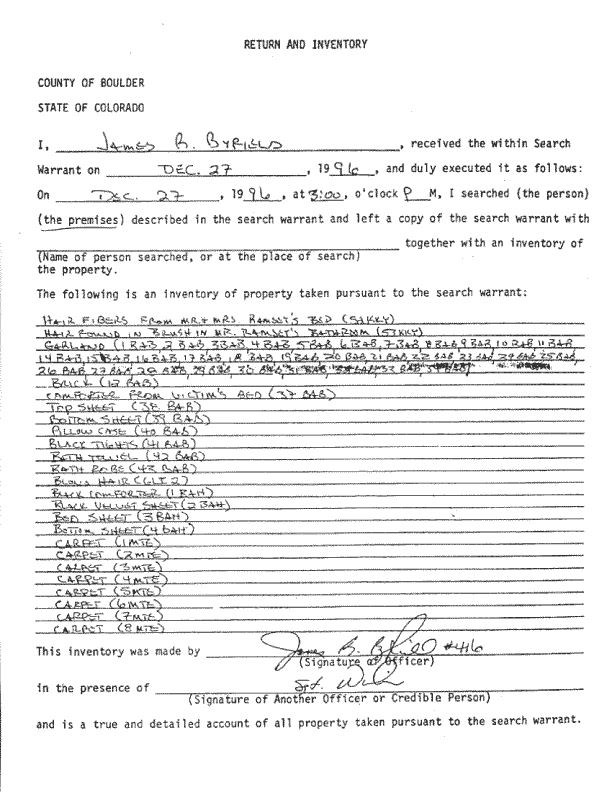 RETURN AND INVENTORY
COUNTY OF BOULDER
STATE OF COLORADO
I, JAMES R. BYFIELD, received the within Search
Warrant on DEC. 27, 1996, and duly executed it as follows:
On DEC. 27, 1996, at 3:00, o'clock P M, I searched (the person)
(the premises) described in the search warrant and left a copy of the search warrant with
together with an inventory of
(Name of person searched, or at the place of search)
the property.
The following is an inventory of property taken pursuant to the search warrant:
HAIR FIBERS FROM MR + MRS. RAMSEY'S BED (5IKKY)
HAIR FOUND IN BRUSH IN MR. RAMSEY'S BATHROOM (51KKY)
GARLAND (1 BAB, 2 BAB, 3 BAB, 4 BAB, 5 BAB, 6 BAB, 7 BAB, 8 BAB, 9 BAB, 10 BAB, 11 BAB,
14 BAB, 15 BAB, 16 BAB, 17 BAB, 18 BAB, 19 BAB, 20 BAB, 21 BAB, 22 BAB, 23 BAB, 24 BAB, 25 BAB,
26 BAB, 27 BAB, 28 BAB, 29 BAB, 30 BAB, 31 BAB, 32 BAB
BRICK (12 BAB)
COMFORTER FROM VICTIM'S BED (37 BAB)
TOP SHEET (38 BAB)
BOTTOM SHEET (39 BAB)
PILLOW CASE (40 BAB)
BLACK TIGHTS (41 BAB)
BATH TOWEL (42 BAB)
BATH ROBE (43 BAB)
HAIR
BLACK COMFORTER (1 BAH)
BLACK VELVET SHEET (2 BAH)
BED SHEET (3 BAH)
BOTTOM SHEET (4 BAH)
CARPET (1MTE)
CARPET (2MTE)
CARPET (3MTE)
CARPET (4MTE)
CARPET (5MTE)
CARPET (6MTE)
CARPET (7MTE)
CARPET (8MTE)
This inventory was made by James R. Byfield #416
(Signature of Officer)
in the presence of Sgt.
(Signature of Another Officer or Credible Person)
and is a true and detailed account of all property taken pursuant to the search warrant.